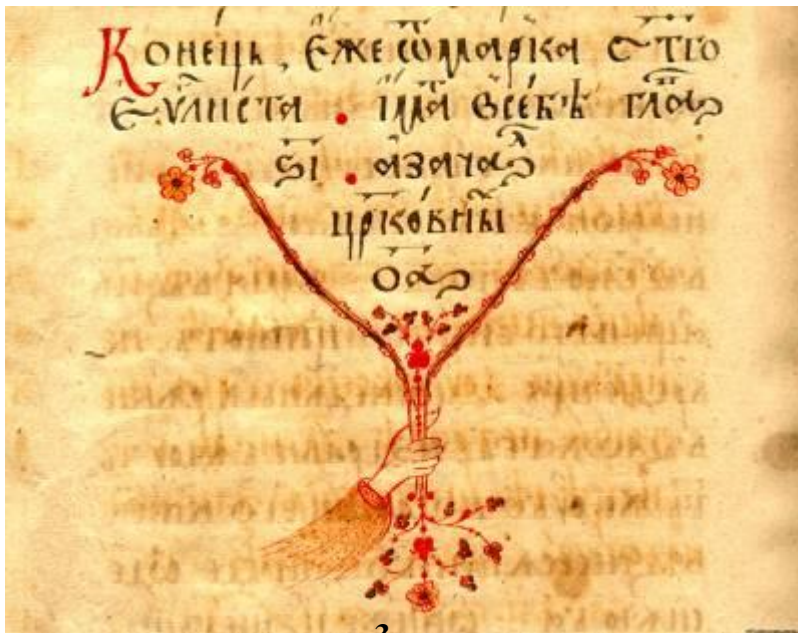 Конецъ, Е́же ѿмарка ст҃го
Еѵ҃листа . има всебѣ гла҃
ѕ҃і . азача҃л
цр҃ковны
о҃а